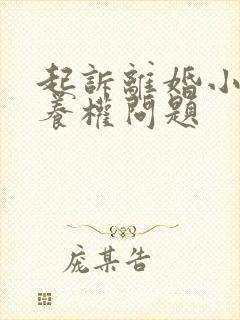 起訴離婚小
養權問題
庞某告